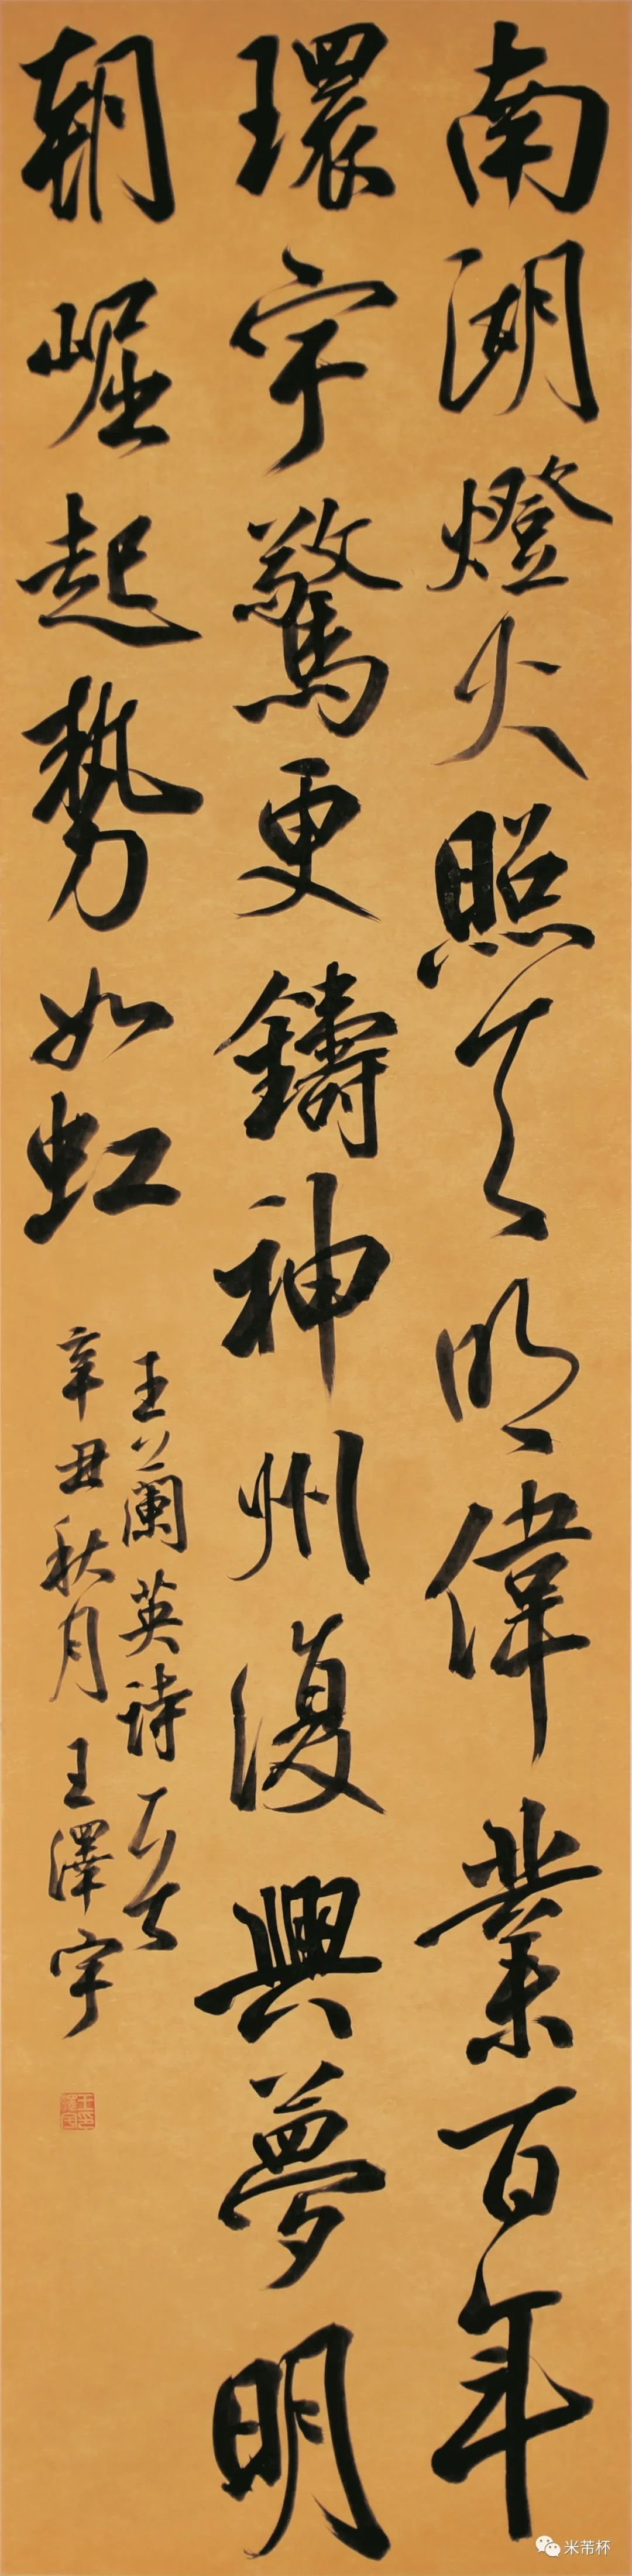 南湖燈火照天明偉業百年
環宇驚更鑄神州復興夢明
朝崛起勢如虹
王蘭英詩
辛丑秋月王澤宇
米芾杯